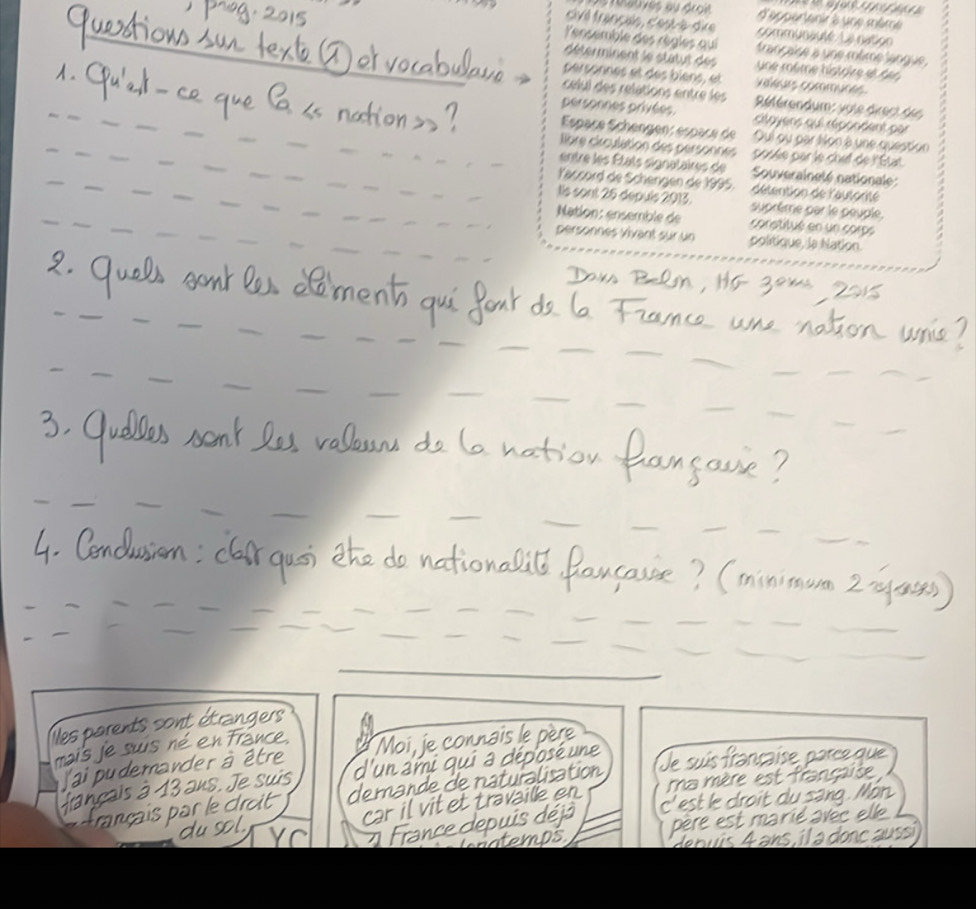 , prog. 2015
Questions sur texte ② et vocabulaire →
1. Qu'est-ce que la << nation >> ?
civil français, c'est-à-dire
l'ensemble des règles qui
déterminent le statut des
personnes et des biens, et
celui des relations entre les
personnes privées.
Espace Schengen: espace de
libre circulation des personnes
entre les États signataires de
l'accord de Schengen de 1995.
Ils sont 26 depuis 2013.
Nation: ensemble de
personnes vivant sur un
d'appartenir à une même
communauté. La nation
française a une même langue,
une même histoire et des
valeurs communes.
Référendum: vote direct des
citoyens qui répondent par
Oui ou par Non à une question
posée par le chef de l'État.
Souveraineté nationale:
détention de l'autorité
suprême par le peuple,
constitué en un corps
politique, la Nation.
Dans Belin, HG 3eme, 2015
2. Quels sont les éléments qui font de la France une nation unie ?
3. Quelles sont les valeurs de la nation française ?
4. Conclusion : c'est quoi être de nationalité française ? (minimum 2 )
Mes parents sont étrangers
mais je suis né en France.
J'ai pu demander à être
français à 13 ans. Je suis
français par le droit
du sol.
Moi, je connais le père
d'un ami qui a déposé une
demande de naturalisation
car il vit et travaille en
France depuis déjà
longtemps.
Je suis française parce que
ma mère est française,
c'est le droit du sang. Mon
père est marié avec elle
depuis 4 ans, il a donc aussi